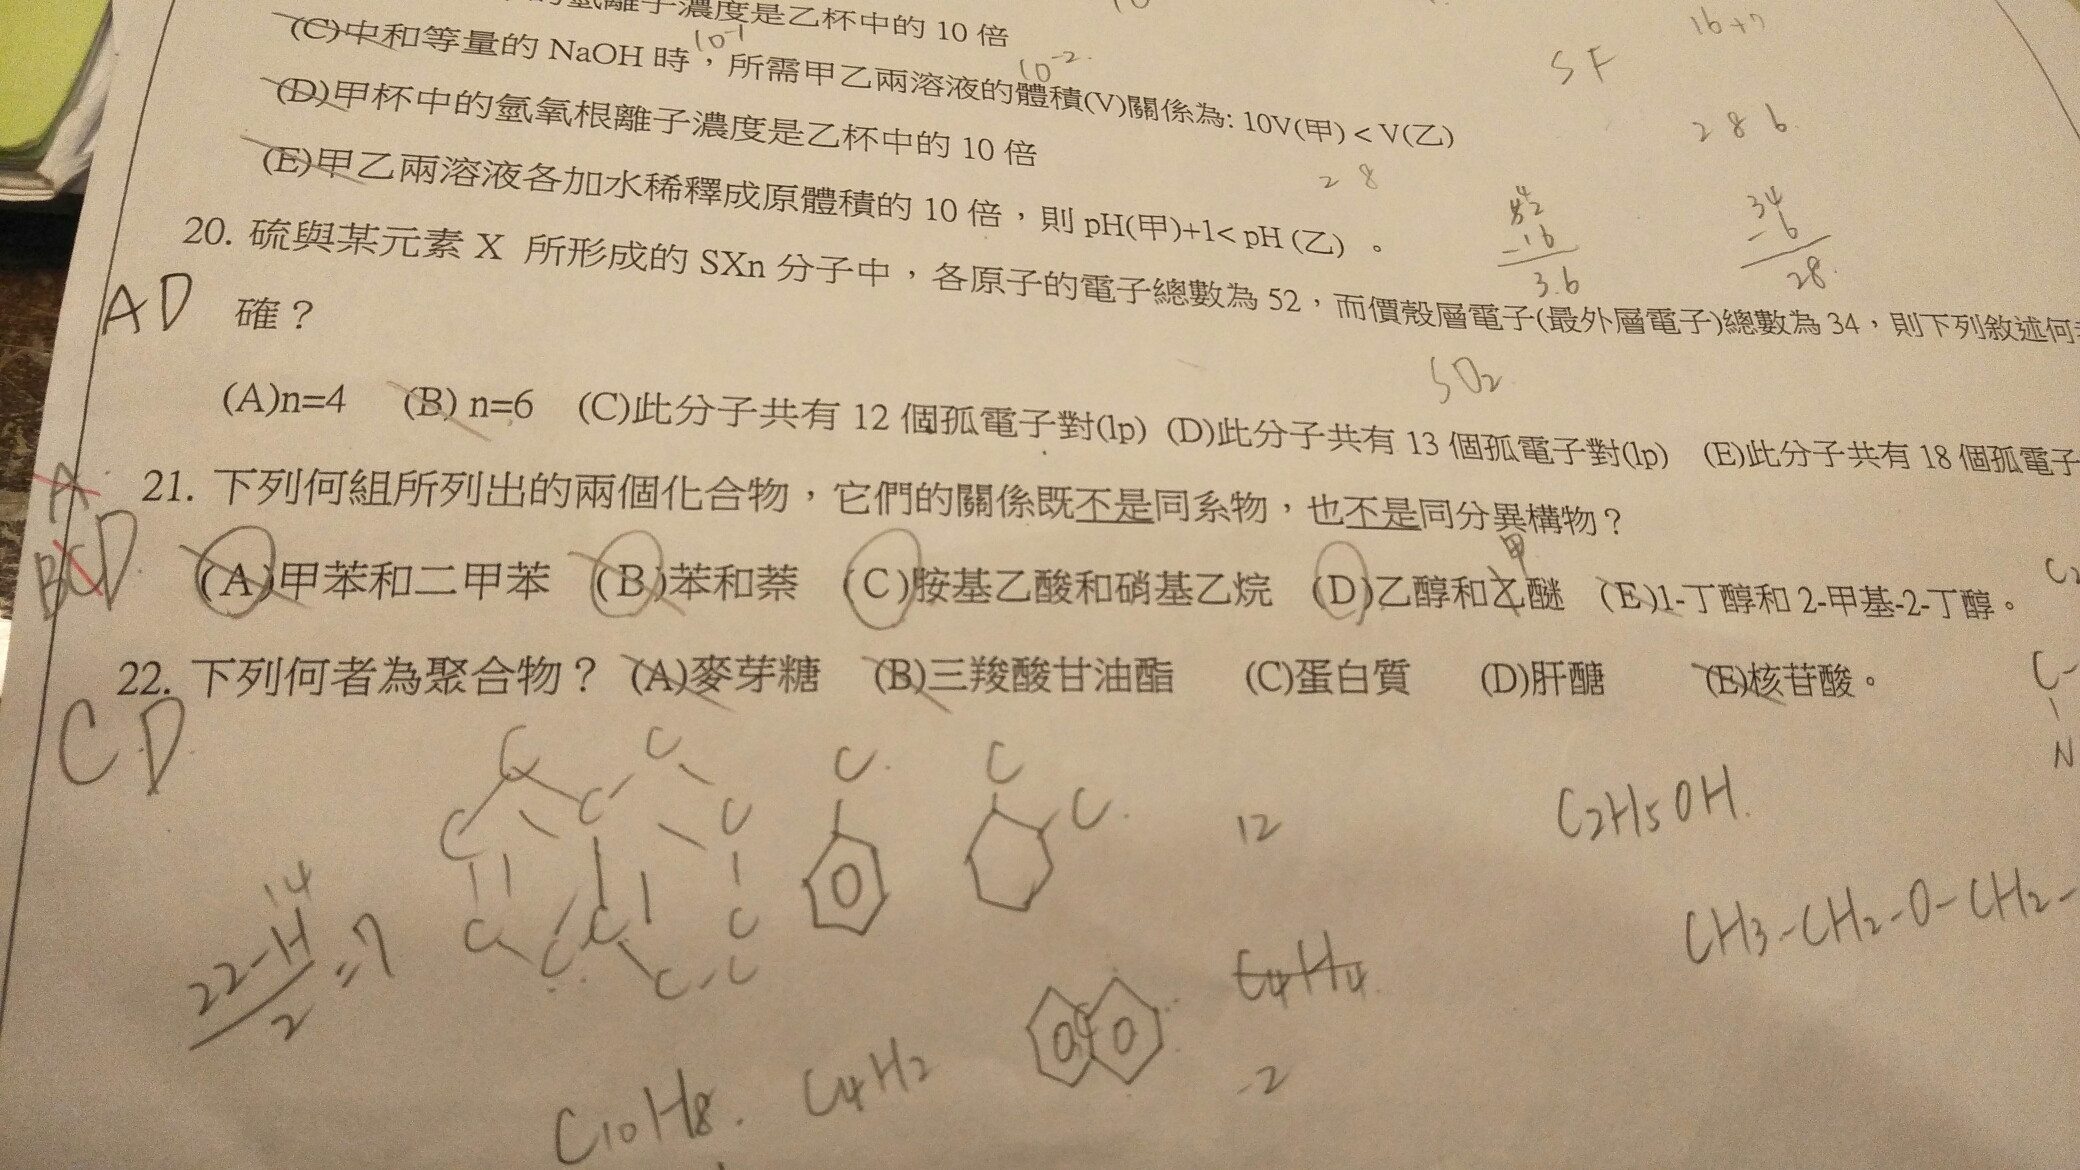 氫離子濃度是乙杯中的 10 倍
(C)中和等量的 NaOH 時，所需甲乙兩溶液的體積(V)關係為: 10V(甲) < V(乙)
10⁻¹
10⁻²
SF
16+7
(D)甲杯中的氫氧根離子濃度是乙杯中的 10 倍
286
(E)甲乙兩溶液各加水稀釋成原體積的 10 倍，則 pH(甲)+1< pH (乙) 。
28
52
-16
36
34
-6
28
20. 硫與某元素 X 所形成的 SXn 分子中，各原子的電子總數為 52，而價殼層電子(最外層電子)總數為 34，則下列敘述何
AD
確？
SO₂
(A)n=4 (B) n=6 (C)此分子共有 12 個孤電子對(lp) (D)此分子共有 13 個孤電子對(lp) (E)此分子共有 18 個孤電子
A
21. 下列何組所列出的兩個化合物，它們的關係既不是同系物，也不是同分異構物？
BCD
甲
(A)甲苯和二甲苯 (B)苯和萘 (C)胺基乙酸和硝基乙烷 (D)乙醇和乙醚 (E)1-丁醇和 2-甲基-2-丁醇。
22. 下列何者為聚合物？ (A)麥芽糖 (B)三羧酸甘油酯 (C)蛋白質 (D)肝醣 (E)核苷酸。
CD
C C C C
C C C C
C C C C
C-C
C-
N
12
C2H5OH.
14
22-H
=7
2
CH3-CH2-O-CH2-
C4H4
-2
C10H8. C4H2